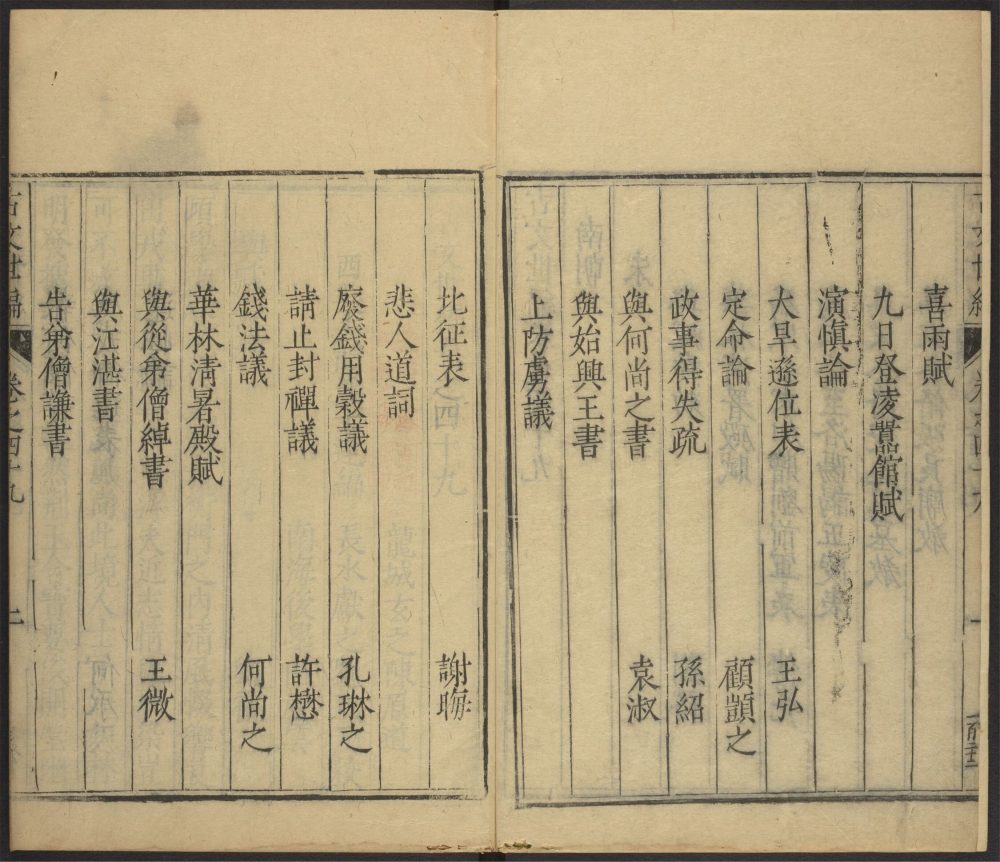 喜雨賦
九日登凌嚚館賦
演慎論
大旱遜位表 王弘
定命論 顧顗之
政事得失疏 孫紹
與何尚之書 袁淑
與始興王書
上防虜議
北征表 謝晦
悲人道詞
廢錢用穀議 孔琳之
請止封禪議 許懋
錢法議 何尚之
華林清暑殿賦
與從弟僧綽書 王微
與江湛書
告弟僧謙書
古文世編 卷之四十九 二